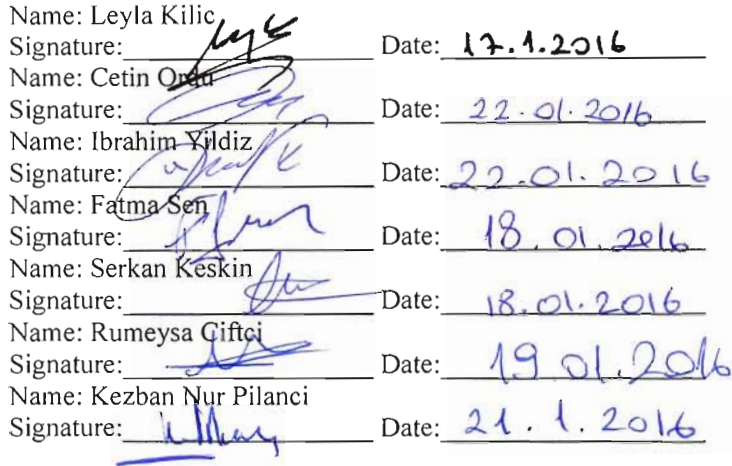 Name: Leyla Kilic
Signature: Date: 17.1.2016
Name: Cetin Ordu
Signature: Date: 22.01.2016
Name: Ibrahim Yildiz
Signature: Date: 22.01.2016
Name: Fatma Sen
Signature: Date: 18.01.2016
Name: Serkan Keskin
Signature: Date: 18.01.2016
Name: Rumeysa Ciftci
Signature: Date: 19 01.2016
Name: Kezban Nur Pilanci
Signature: Date: 21.1.2016